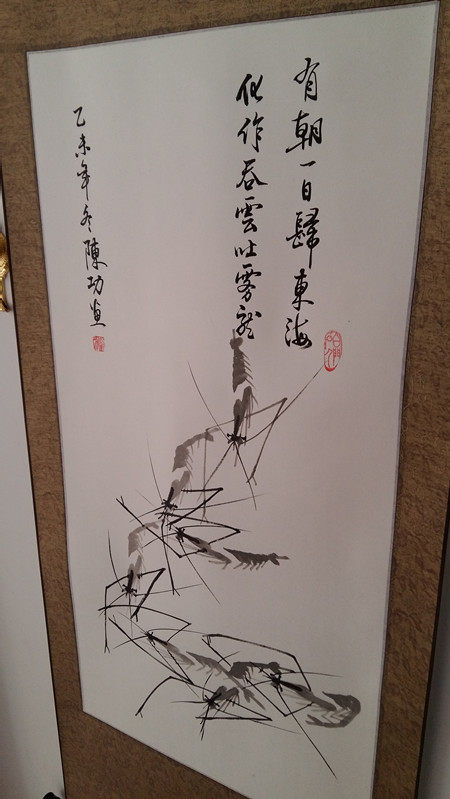 有朝一日歸東海
化作吞雲吐雾龙
乙未年冬陳功画